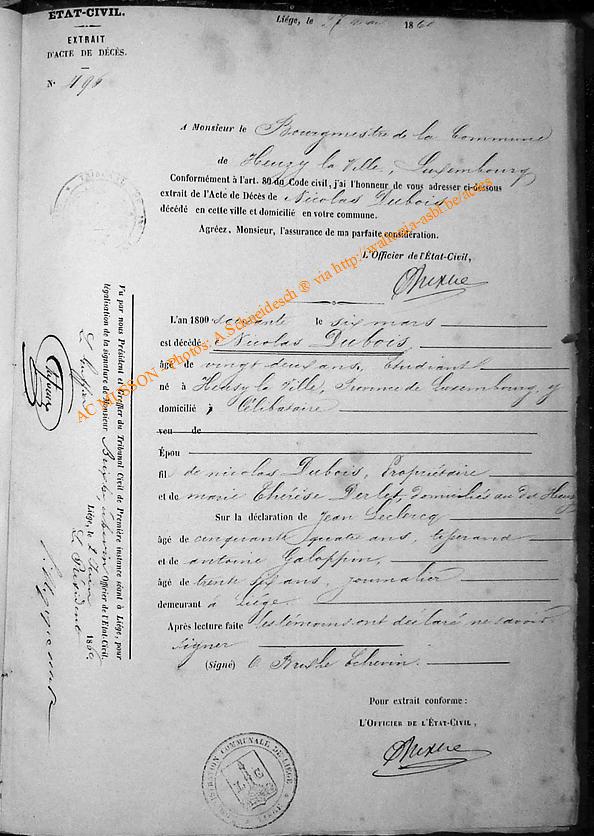 ÉTAT-CIVIL.
EXTRAIT
D'ACTE DE DÉCÈS.
N° 496
Liége, le 27 186
A Monsieur le Bourgmestre de la Commune
de la Ville, Luxembourg
Conformément à l'art. 80 du Code civil, j'ai l'honneur de vous adresser ci-dessous
extrait de l'Acte de Décès de Nicolas Dubois
décédé en cette ville et domicilié en votre commune.
Agréez, Monsieur, l'assurance de ma parfaite considération.
L'Officier de l'État-Civil,
L'an 1800 soixante le six mars
est décédé Nicolas Dubois,
âgé de vingt deux ans, Etudiant
né à la Ville, Province de Luxembourg, y
domicilié, Célibataire
veu de
Épou
fil de nicolas Dubois, Propriétaire
et de marie Thérèse Derlet, domiciliés au dit
Sur la déclaration de Jean Leclercq
âgé de cinquante quatre ans, tisserand
et de antoine Galoppin,
âgé de trente six ans, journalier
demeurant à Liége.
Après lecture faite les témoins ont déclaré ne savoir
signer
(Signé) Echevin.
Pour extrait conforme :
L'OFFICIER DE L'ÉTAT-CIVIL,
Vu par nous Président et Greffier du Tribunal Civil de Première instance séant à Liége, pour
légalisation de la signature de Monsieur Echevin Officier de l'Etat-Civil.
Liége, le 2 Juin 1860
Le Greffier Le Président
ADMINISTRATION COMMUNALE DE LIÉGE
LIÉGE
AC MUSSON - Photos: A.Schneidesch ® via http://wallonia-asbl.be/actes